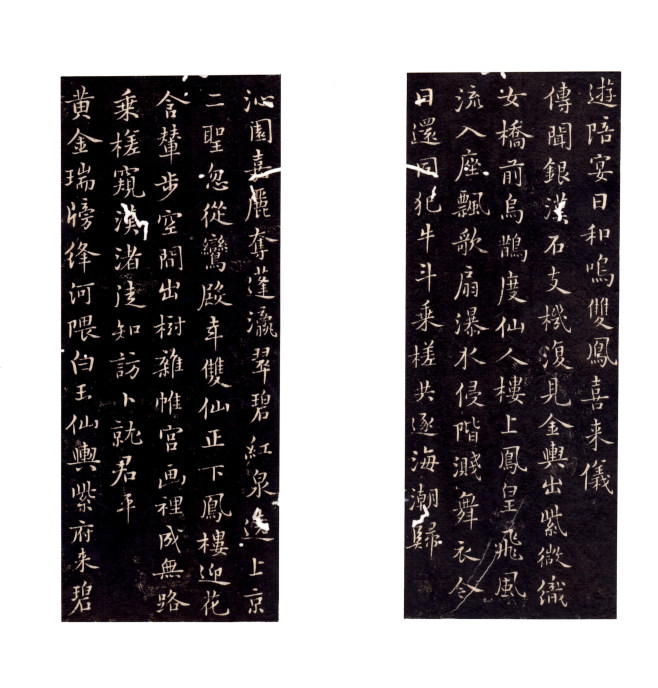 遊陪宴日和鳴雙鳳喜来儀
傳聞銀漢石支機復見金輿出紫微織
女橋前烏鵲度仙人樓上鳳皇飛風
流入座飄歌扇瀑水侵階濺舞衣今
日還同犯牛斗乘槎共逐海潮歸
沁園嘉麗奪蓬瀛翠碧紅泉遶上京
二聖忽從鸞殿幸雙仙正下鳳樓迎花
含輦步空間出樹雜帷宮画裡成無路
乘槎窺漢渚徒知訪卜就君平
黄金瑞牓絳河隈白玉仙輿紫府来碧